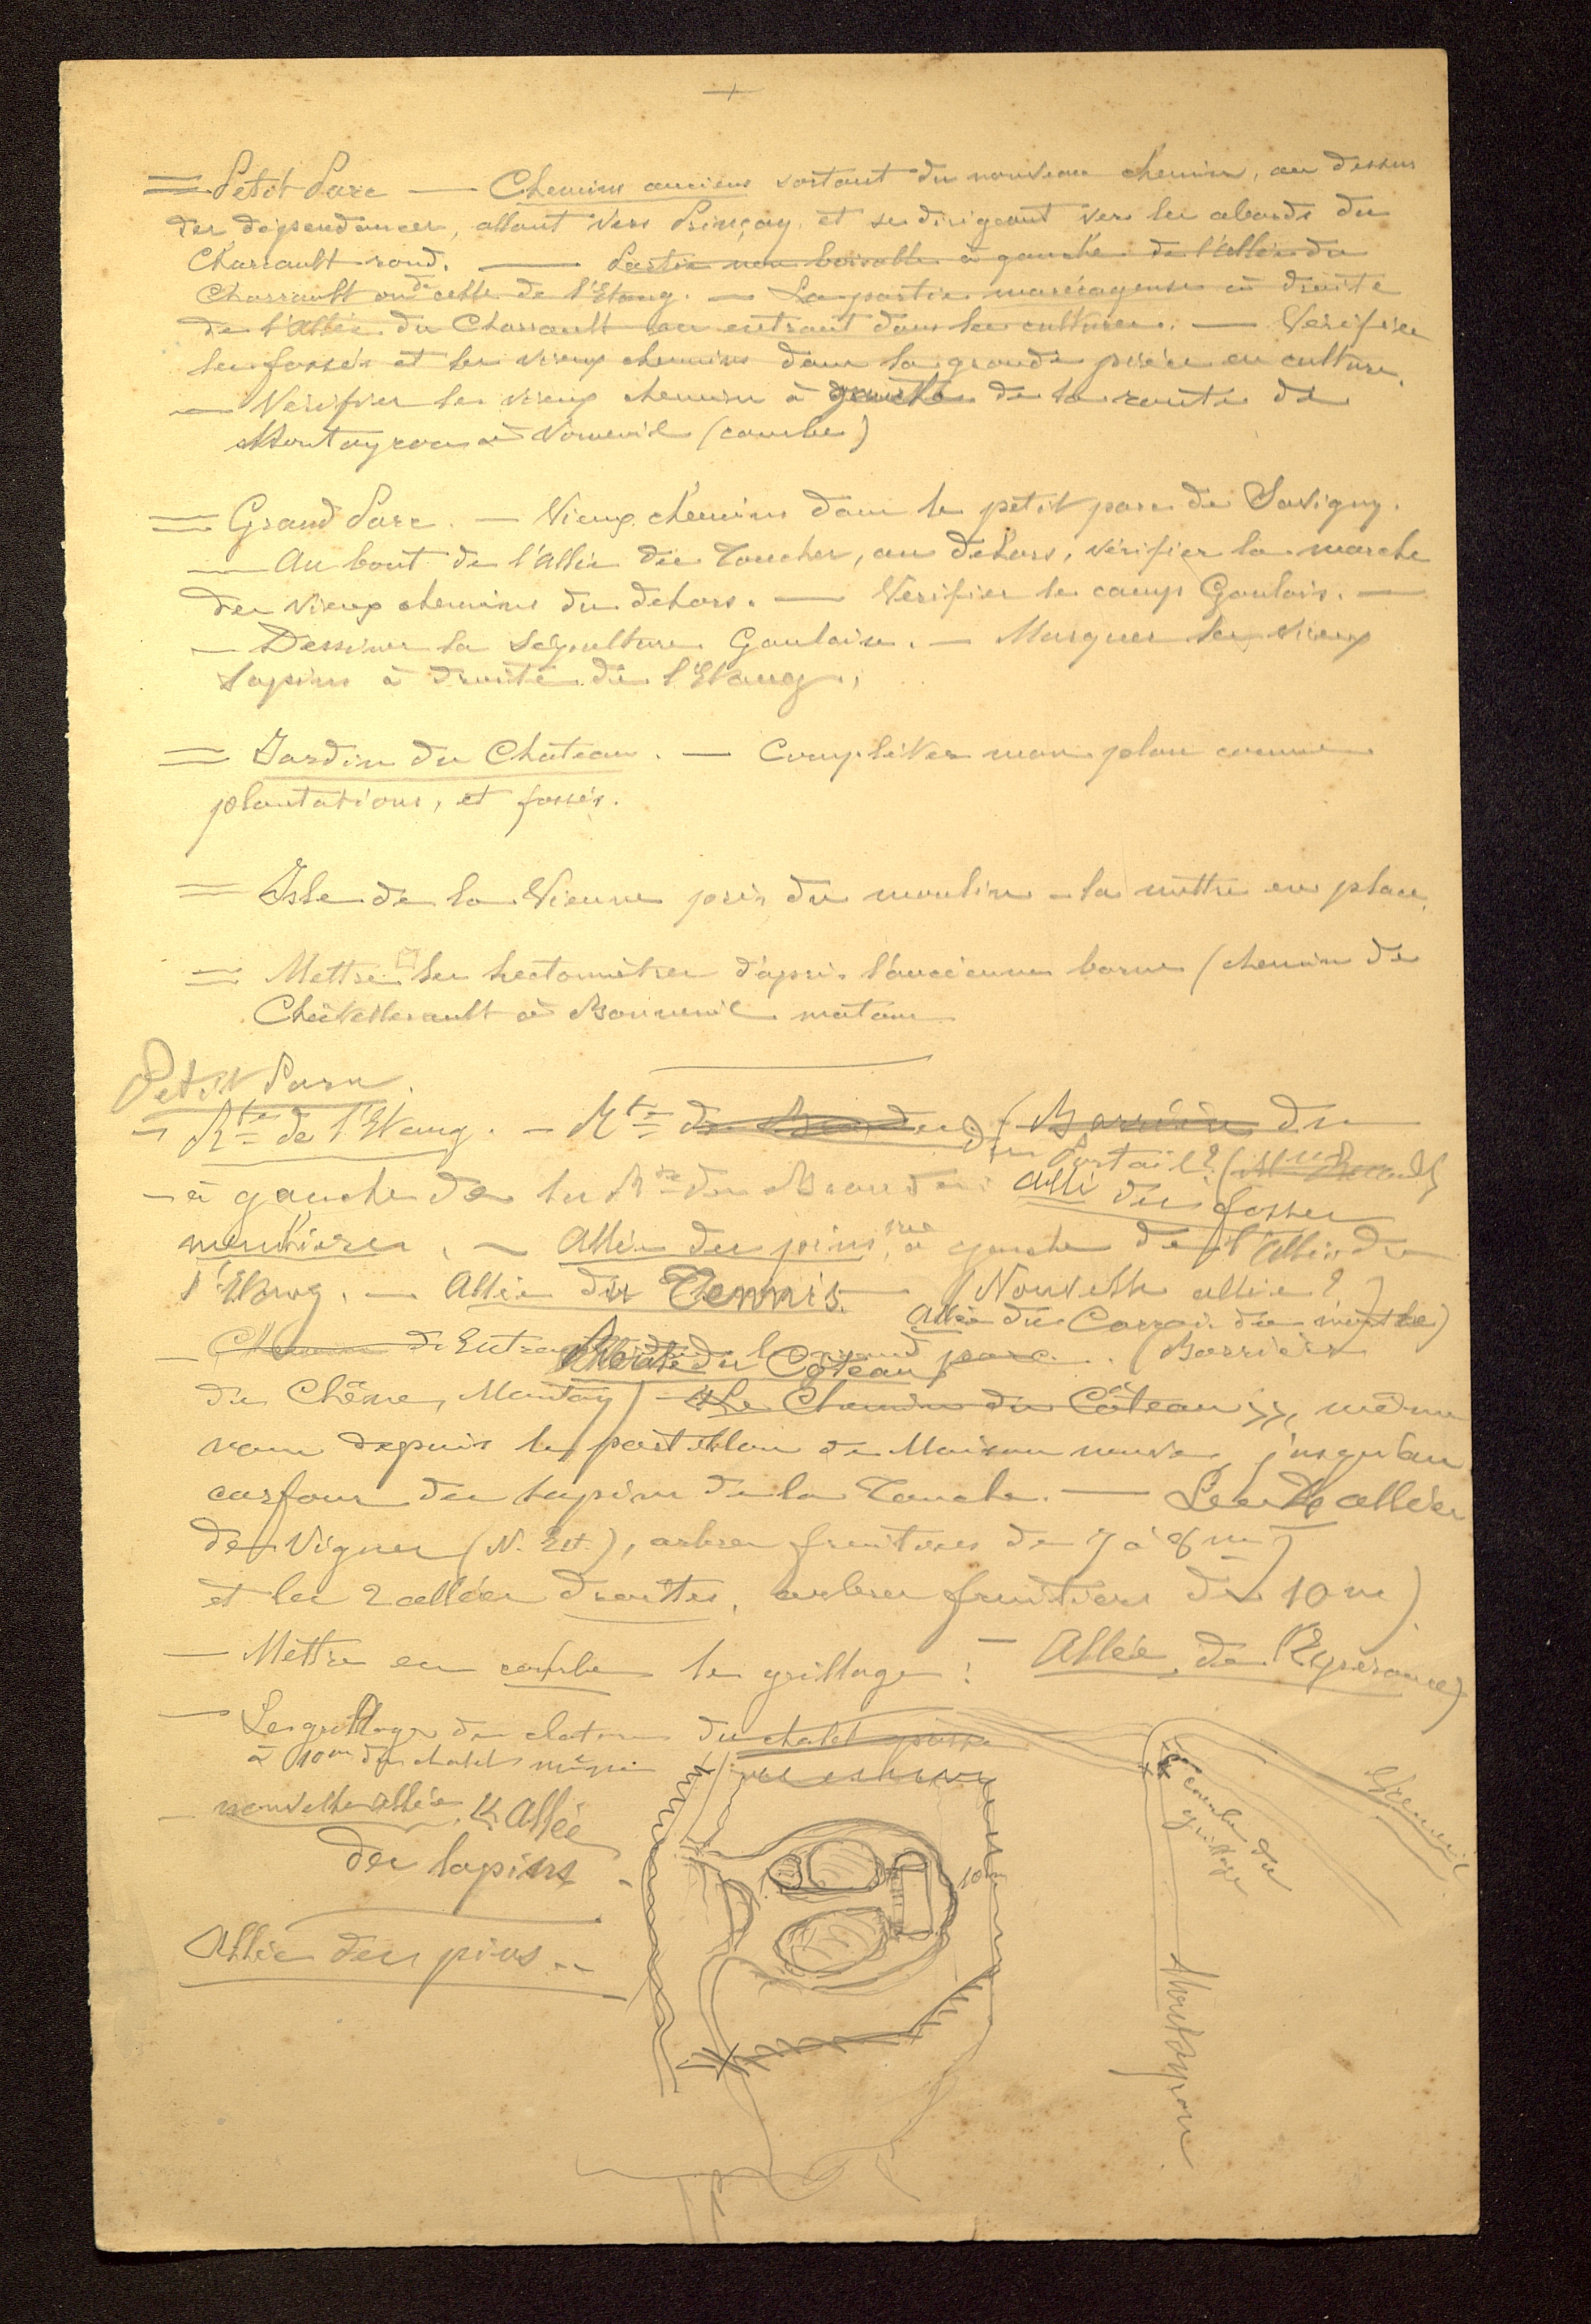 = Petit Parc — Chemins anciens sortant du nouveau chemin, au dessus
des dépendances, allant vers Prinçay, et se dirigeant vers les abords du
Charrault rond. — Partie non boisable à gauche de l'Allée du
Charrault ou de celle de l'Etang. — La partie marécageuse à droite
de l'Allée du Charrault en entrant dans les cultures. — Vérifier
les fossés et les vieux chemins dans la grande pièce en culture.
— Vérifier le vieux chemin à de la route de
Montayron à Voneuil (courbe)
= Grand Parc. — Vieux chemins dans le petit parc de Savigny.
— Au bout de l'allée de Toucher, au dehors, vérifier la marche
des vieux chemins du dehors. — Vérifier le camp Gaulois. —
— Dessiner la sépulture Gauloise. — Marquer les vieux
sapins à droite de l'Etang.
= Jardin du Château. — Compléter mon plan comme
plantations, et fossés.
= Isle de la Vienne près du moulin - la mettre en place.
= Mettre les hectomètres d'après l'ancienne borne (chemin de
Châtellerault à Bonneuil matour
Petit Parc.
— Rte de l'Etang. — Rte (Barrière du
du Portail?
— à gauche de la Rte du Allée des fosses
meulières. — Allée des pins, à gauche de l'Allée de
l'Etang. — Allée du Tennis — (Nouvelle allée?)
Allée du Carroi du
— Chemin d'Entrée grand parc. (Barrière
Route du Coteau
du Chêne, Montay) — «Le Chemin du Côteau», même
nom depuis le portillon de Maison neuve, jusqu'au
carfour des sapins de la Touche. — Les allées
de Vignes (N. Est.), arbres fruitiers de 7 à 8 m
et les 2 allées droites, arbres fruitiers de 10 m)
— Mettre en courbe le grillage: — Allée de l'Espérance)
— Le grillage de cloture du chalet
à 10m du chalet même
— nouvelle allée, Allée
des lapins
10m
courbe du
grillage
Allée des pins
Montayron